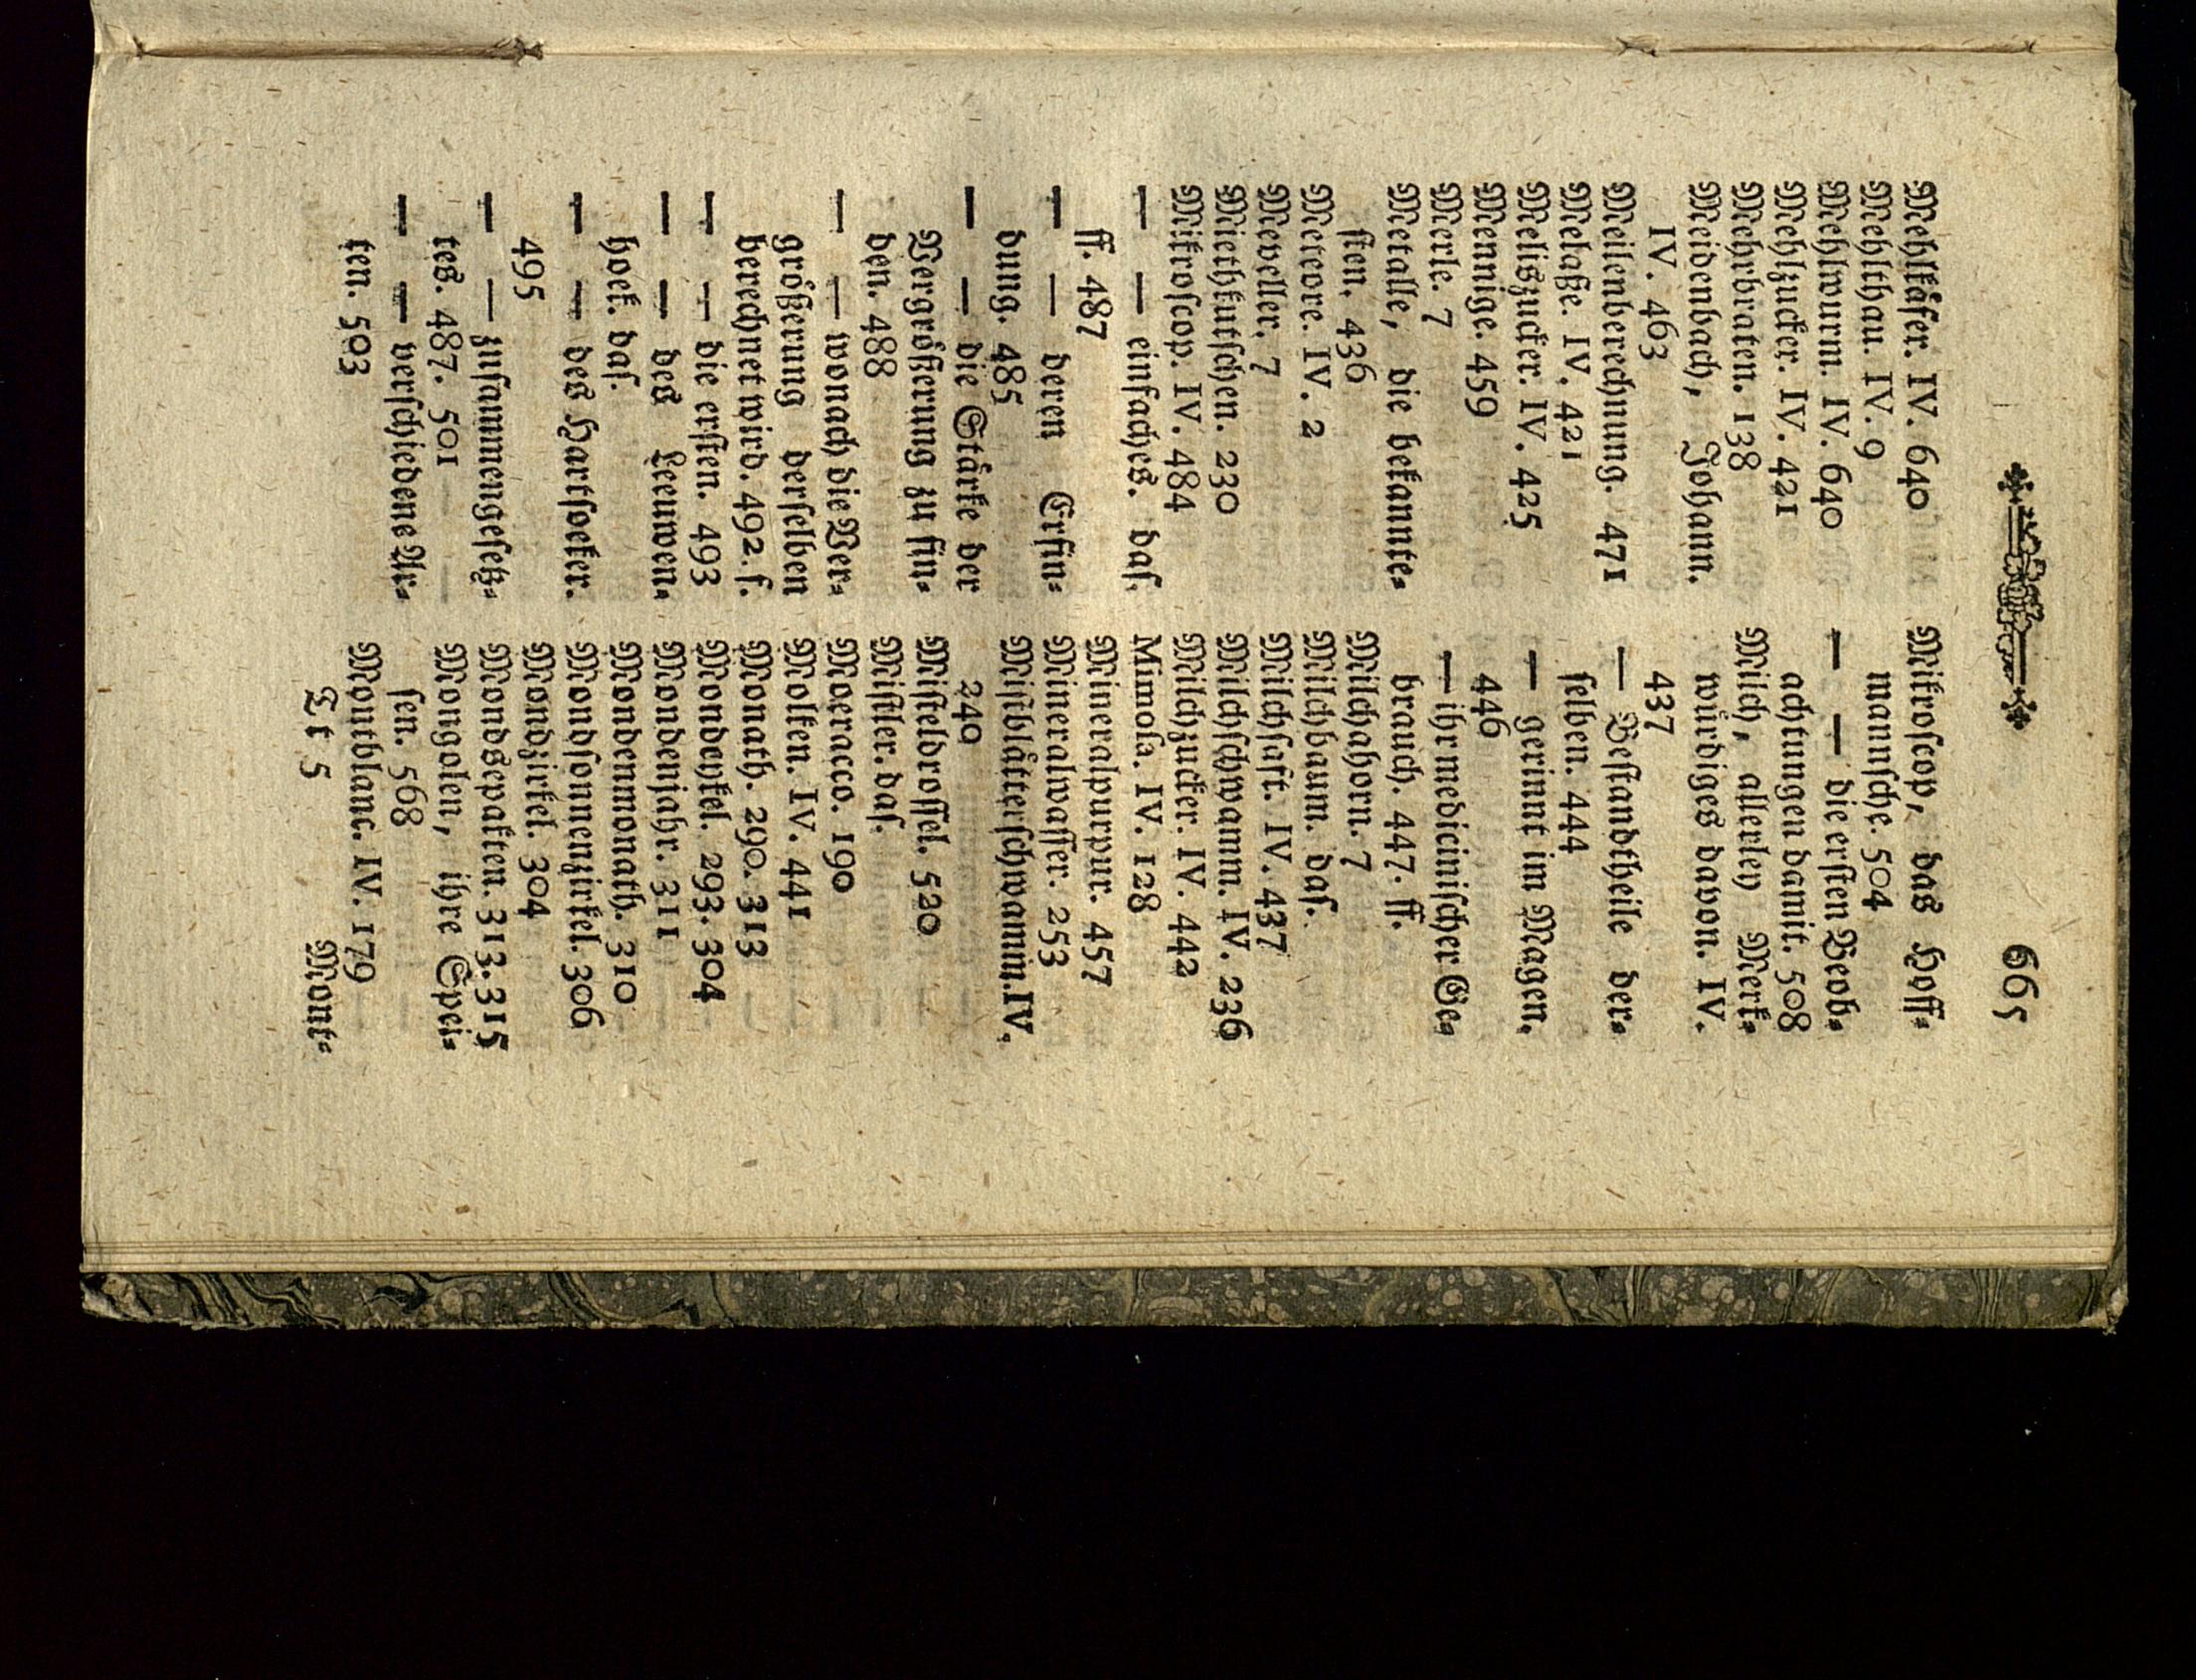 665
Mehlkåfer. IV. 640
Mehlthau. IV. 9
Mehlwurm. IV. 640
Mehlzucker. IV. 421
Mehrbraten. 138
Meidenbach, Johann.
IV. 463
Meilenberechnung. 471
Melaße. IV. 421
Meliszucker. IV. 425
Mennige. 459
Merle. 7
Metalle, die bekannte⸗
ſten. 436
Meteore. IV. 2
Meveller. 7
Miethkutſchen. 230
Mikroſcop. IV. 484
— — einfaches. daſ.
ff. 487
— — deren Erfin⸗
dung. 485
— — die Stårke der
Vergrößerung zu fin⸗
den. 488
— — wonach die Ver⸗
größerung derſelben
berechnet wird. 492. f.
— — die erſten. 493
— — des Leeuwen⸗
hoek. daſ.
— — des Hartſoeker.
495
— — zuſammengeſetz⸗
tes. 487. 501
— — verſchiedene Ar⸗
ten. 503
Mikroſcop, das Hoff⸗
mannſche. 504
— — die erſten Beob⸗
achtungen damit. 508
Milch, allerley Merk⸗
würdiges davon. IV.
437
— Beſtandtheile der⸗
ſelben. 444
— gerinnt im Magen.
446
— ihr mediciniſcher Ge⸗
brauch. 447. ff.
Milchahorn. 7
Milchbaum. daſ.
Milchſaft. IV. 437
Milchſchwamm. IV. 236
Milchzucker. IV. 442
Mimoſa. IV. 128
Mineralpurpur. 457
Mineralwaſſer. 253
Miſtblåtterſchwamm. IV.
240
Miſteldroſſel. 520
Miſtler. daſ.
Moeracco. 190
Molken. IV. 441
Monath. 290. 313
Mondcykel. 293. 304
Mondenjahr. 311
Mondenmonath. 310
Mondſonnenzirkel. 306
Mondzirkel. 304
Mondsepakten. 313. 315
Mongolen, ihre Spei⸗
ſen. 568
Montblanc. IV. 179
Tt 5
Mont⸗